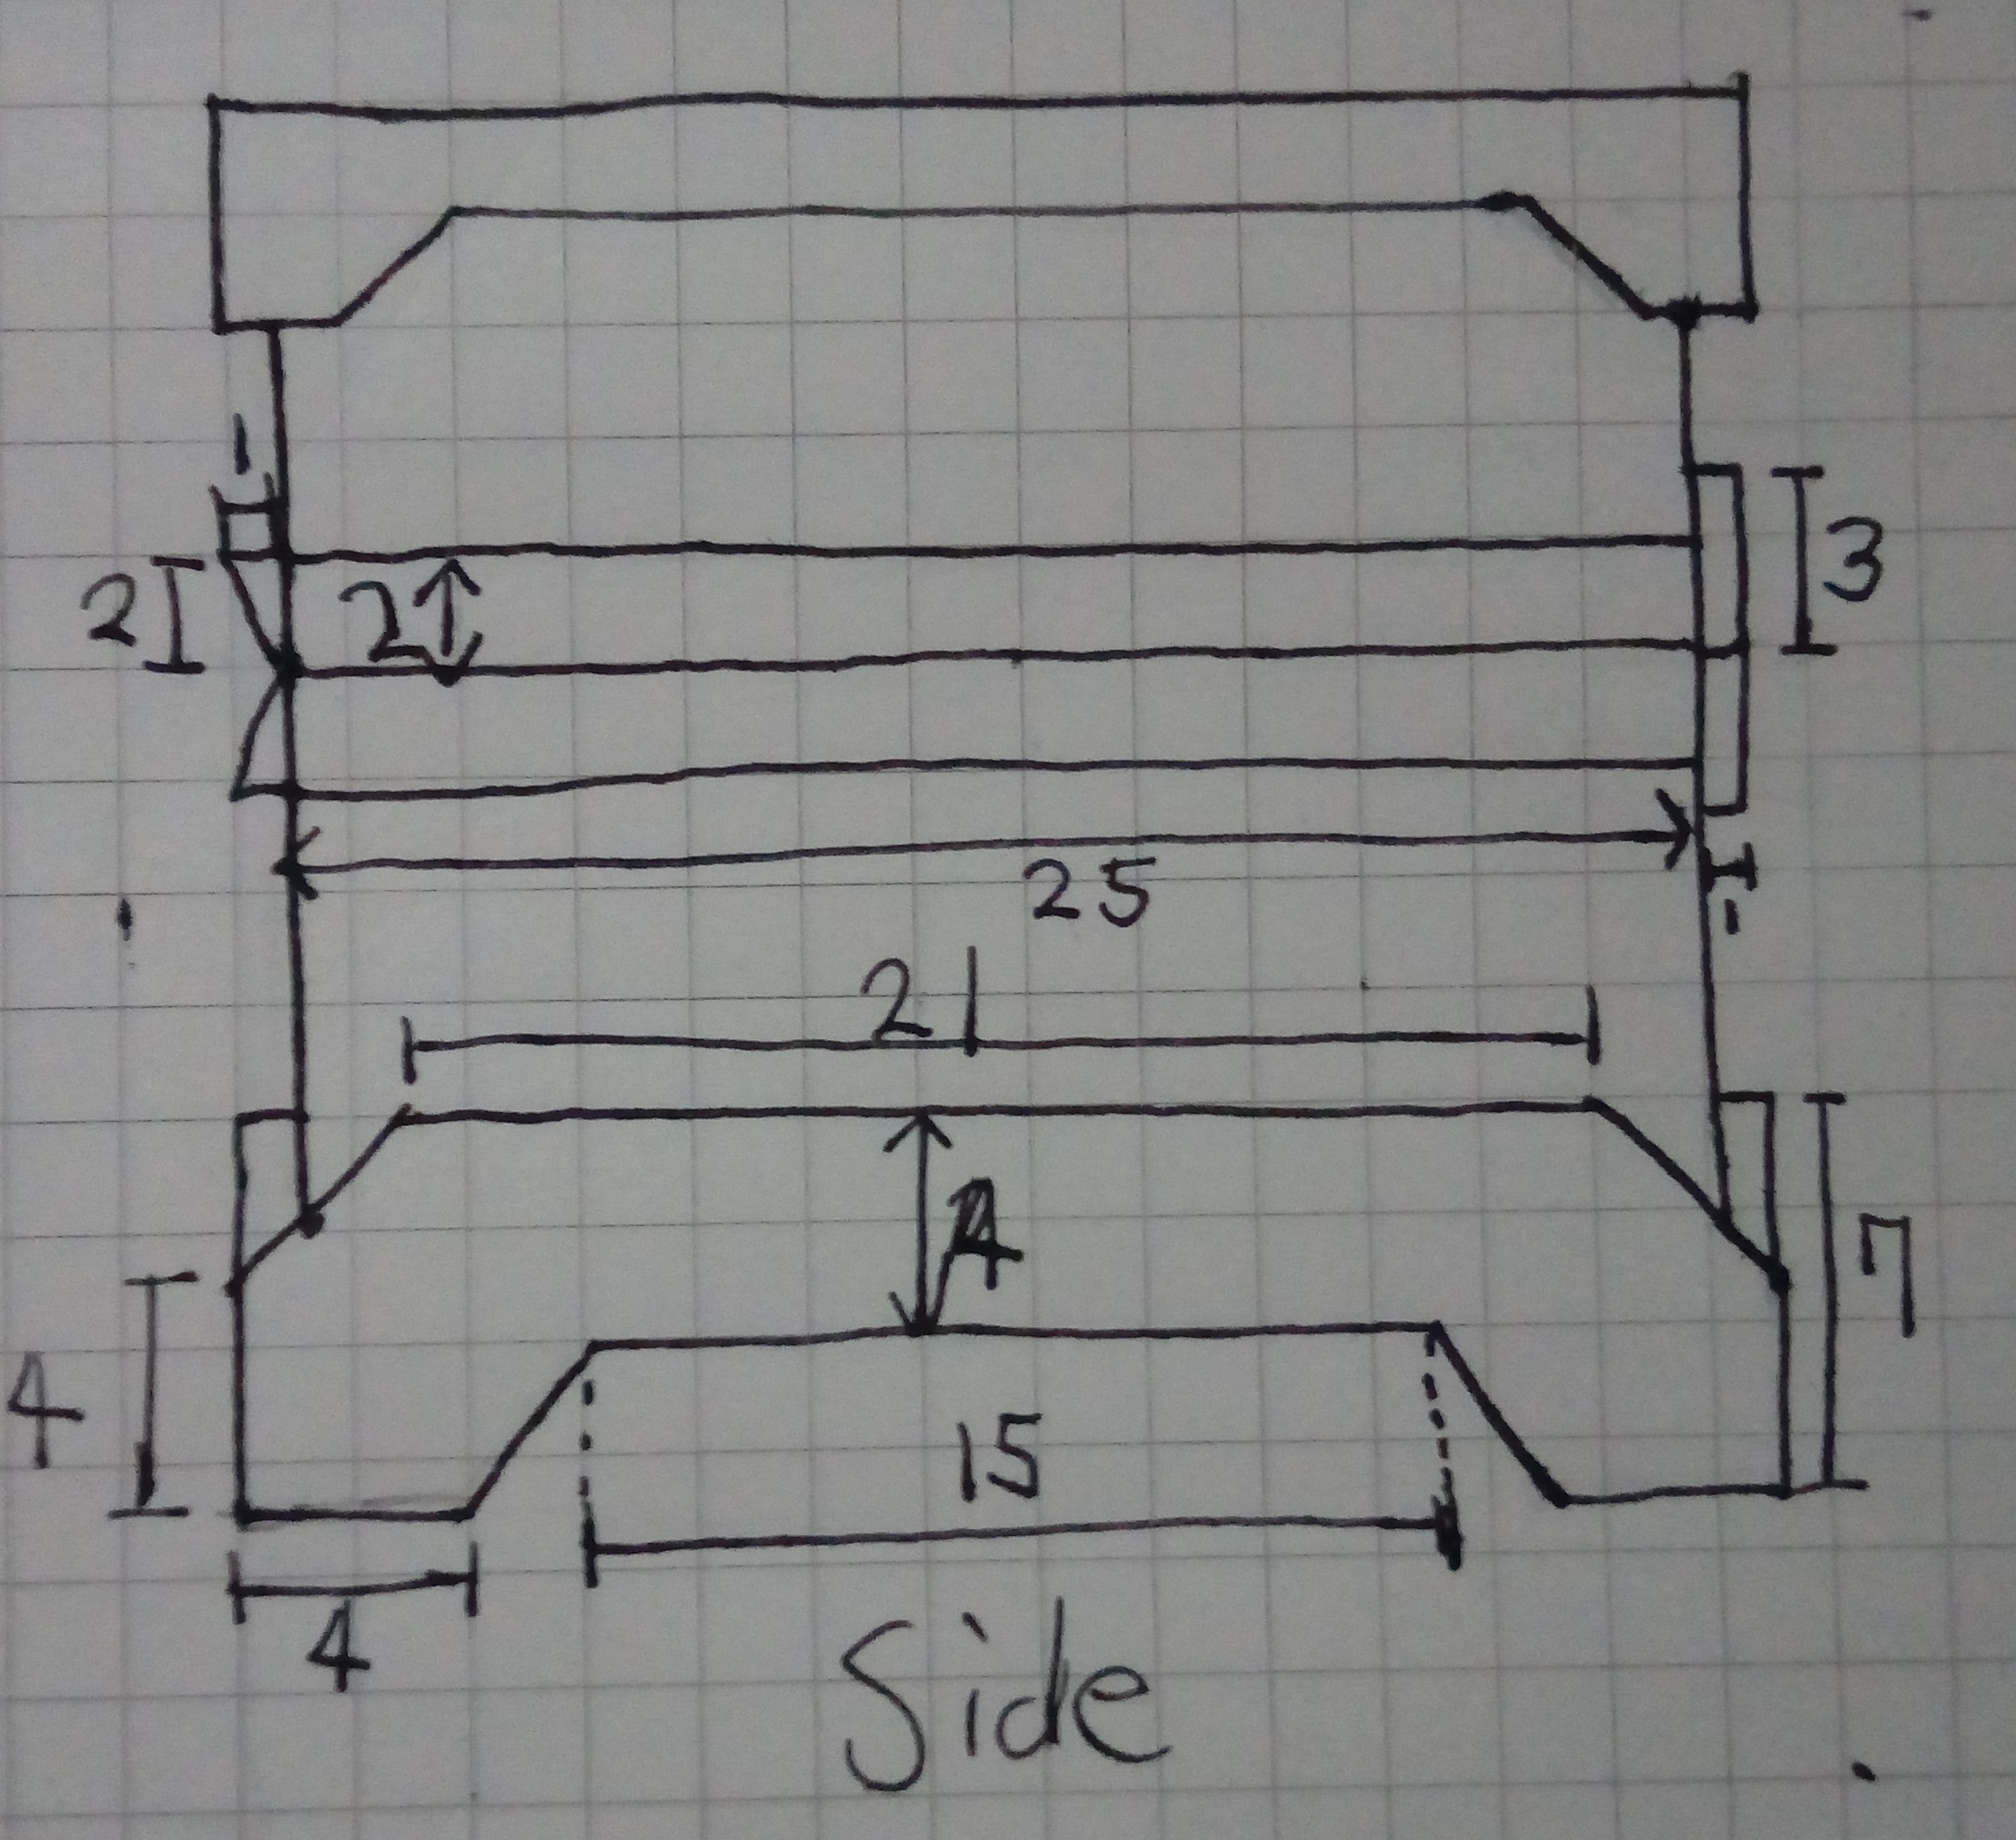 1
3
2
2
25
1
21
4
7
4
15
4
Side